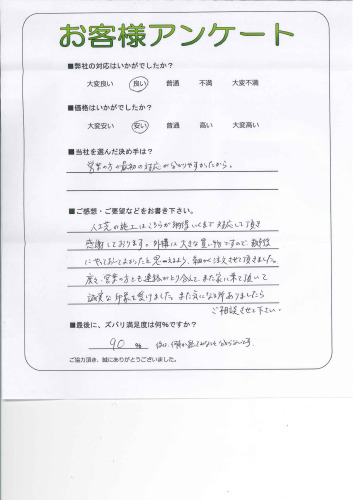 お客様アンケート
■弊社の対応はいかがでしたか？
大変良い 良い 普通 不満 大変不満
■価格はいかがでしたか？
大変安い 安い 普通 高い 大変高い
■当社を選んだ決め手は？
営業の方の最初の対応が分かりやすかったから。
■ご感想・ご要望などをお書き下さい。
の施工はこちらが納得いくまで対応して頂き
感謝しております。外構は大きな買い物ですので、
にやっておいてよかったと思えるよう、細かく注文させて頂きました。
度々、営業の方とも連絡がとり合えて、また家に来て頂いて
誠実な印象を受けました。また気になる所ありましたら
ご相談させて下さい。
■最後に、ズバリ満足度は何％ですか？
90 %
ご協力頂き、誠にありがとうございました。